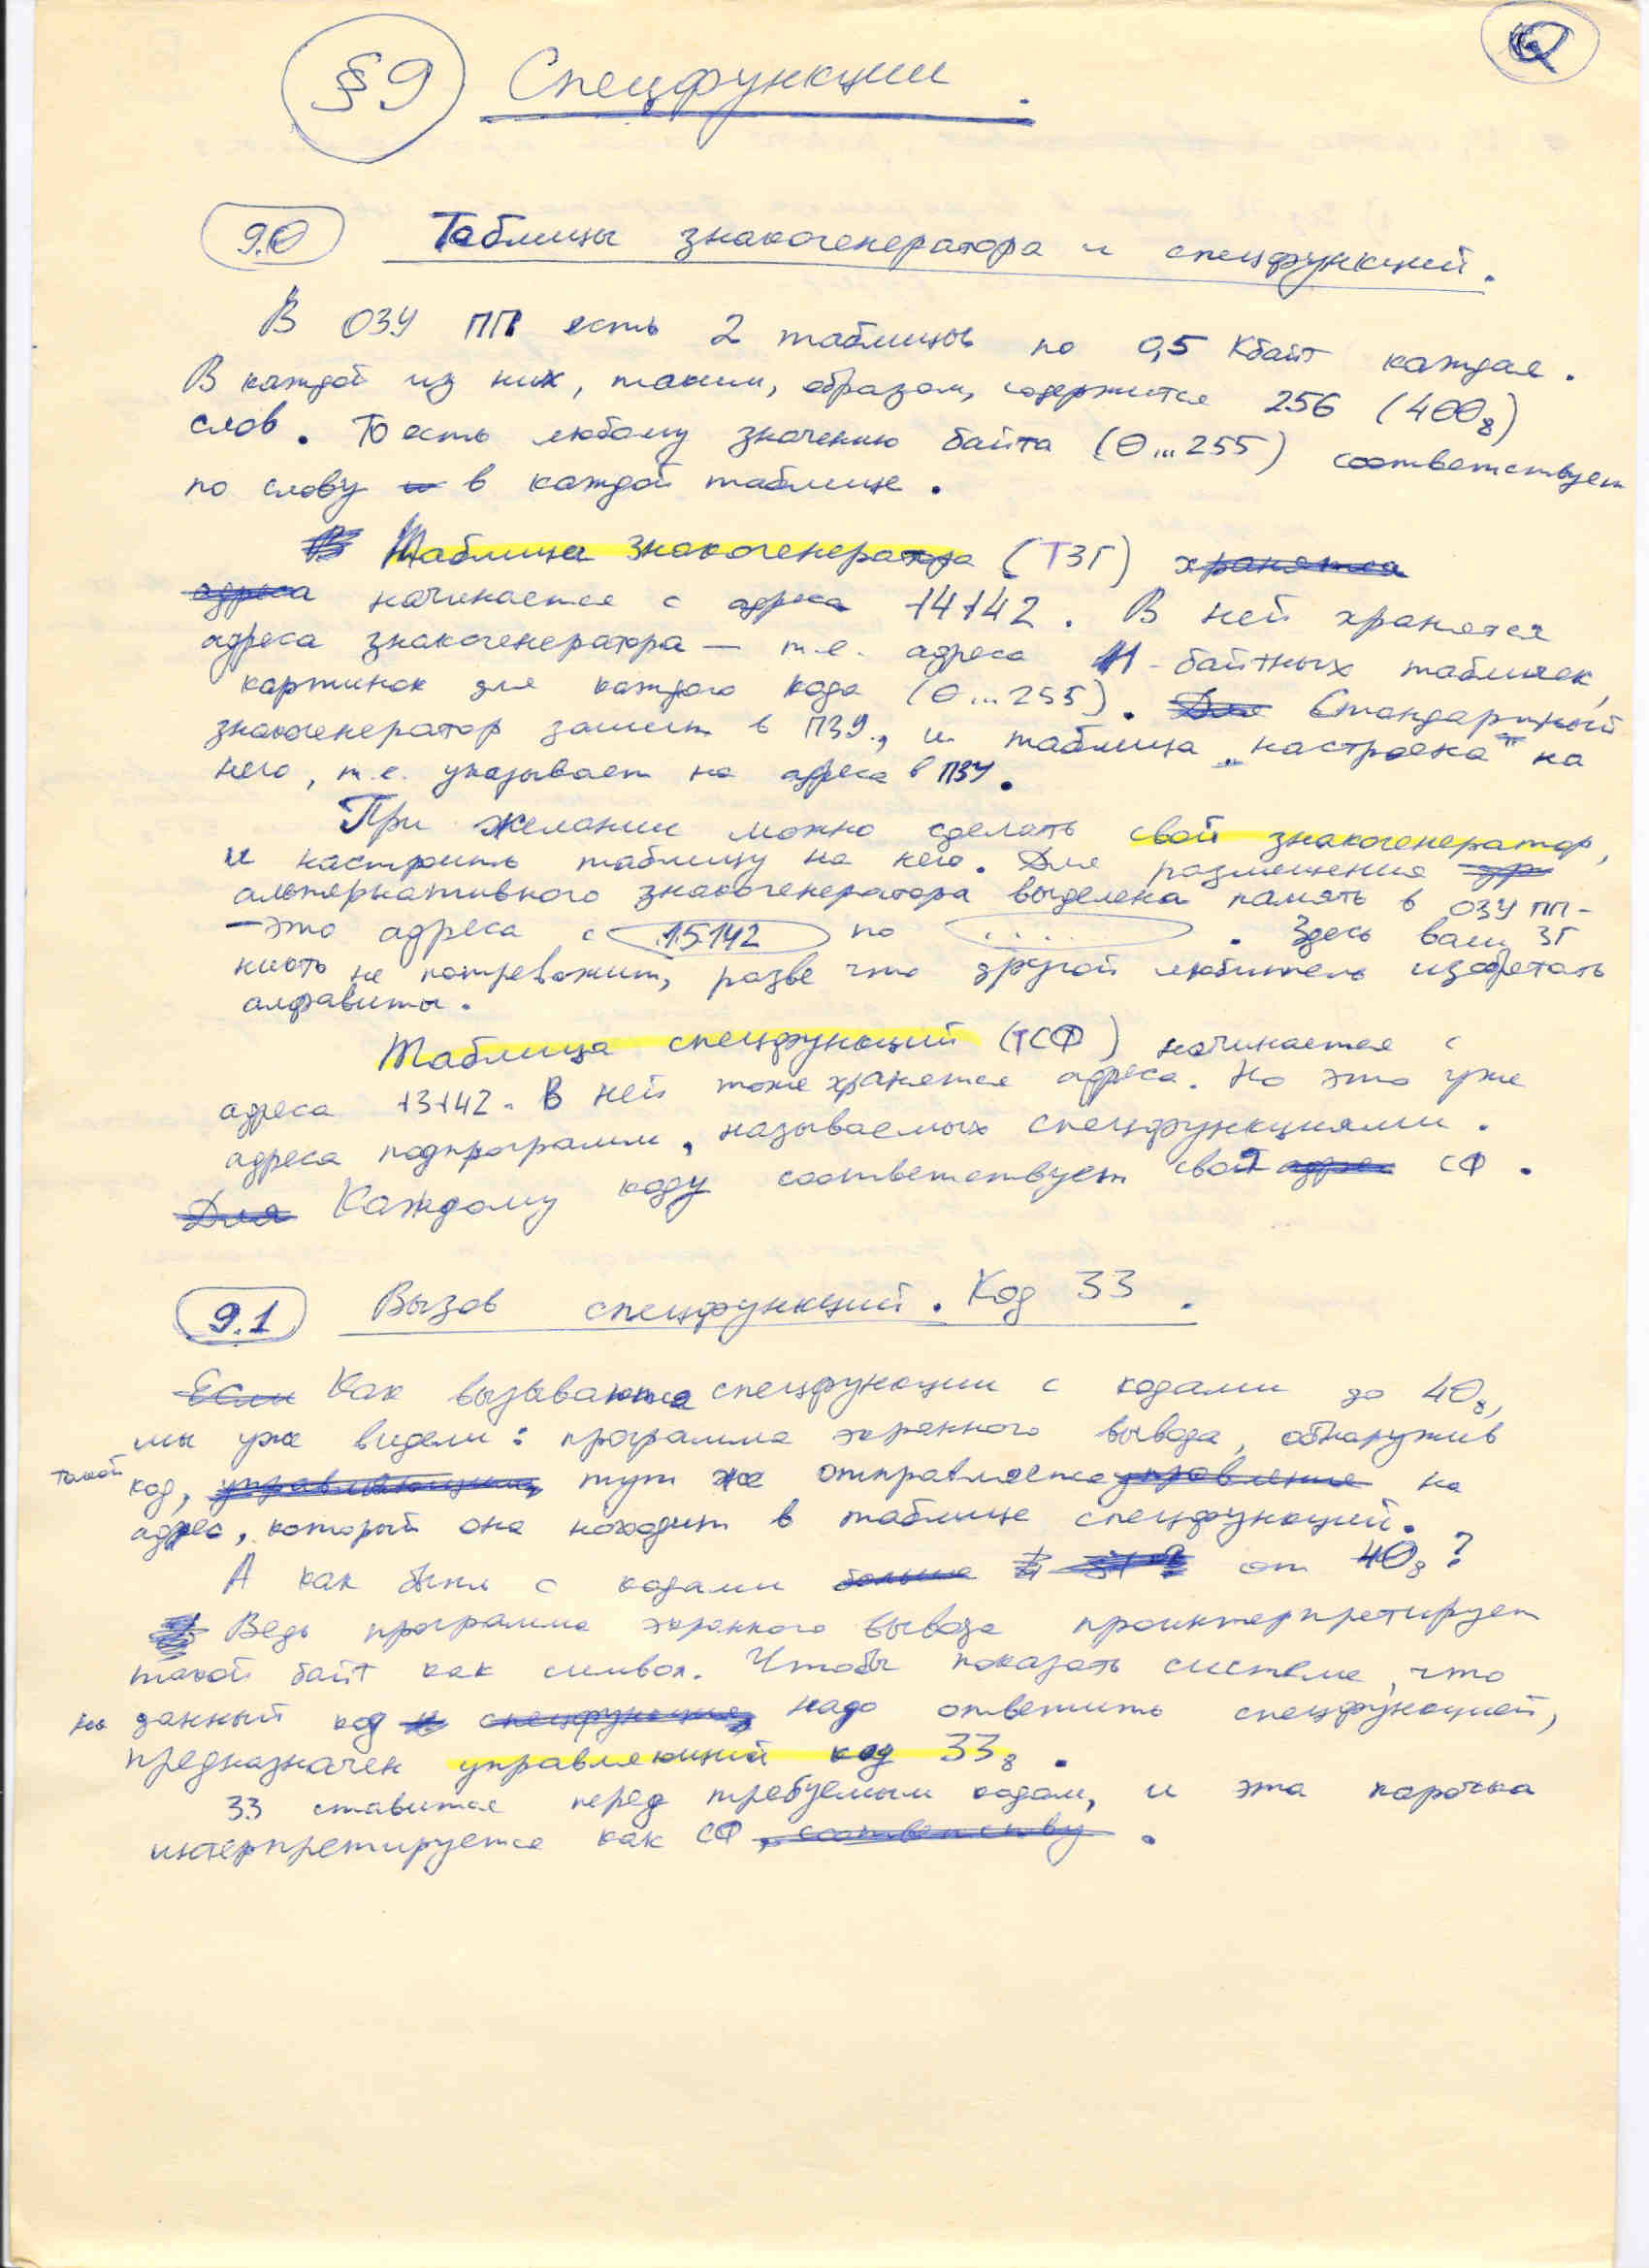 §9 Спецфункции.
9.0 Таблицы знакогенератора и спецфункций.
В ОЗУ ПП есть 2 таблицы по 0,5 Кбайт каждая.
В каждой из них, таким, образом, содержится 256 (400₈)
слов. То есть любому значению байта (0...255) соответствует
по слову в каждой таблице.
Таблица знакогенератора (ТЗГ) хранятся
адреса начинается с адреса 14142. В ней хранятся
адреса знакогенератора — т.е. адреса 11-байтных табличек,
картинок для каждого кода (0...255). Для Стандартный
знакогенератор зашит в ПЗУ, и таблица „настроена" на
него, т.е. указывает на адреса в ПЗУ.
При желании можно сделать свой знакогенератор,
и настроить таблицу на него. Для размещения
альтернативного знакогенератора выделена память в ОЗУ ПП -
— это адреса с 15142 по .... . Здесь ваш ЗГ
никто не потревожит, разве что другой любитель изобретать
алфавиты.
Таблица спецфункций (ТСФ) начинается с
адреса 13142. В ней тоже хранятся адреса. Но это уже
адреса подпрограмм, называемых спецфункциями.
Для Каждому коду соответствует своя адрес СФ.
9.1 Вызов спецфункций. Код 33.
Если Как вызываются спецфункции с кодами до 40₈,
мы уже видели: программа экранного вывода, обнаружив
такой код, управляющий, тут же отправляется управление на
адрес, который она находит в таблице спецфункций.
А как быть с кодами больше от 40₈?
Ведь программа экранного вывода проинтерпретирует
такой байт как символ. Чтобы показать системе, что
на данный код и спецфункция, надо ответить спецфункцией,
предназначен управляющий код 33₈.
33 ставится перед требуемым кодом, и эта парочка
интерпретируется как СФ, соответству.